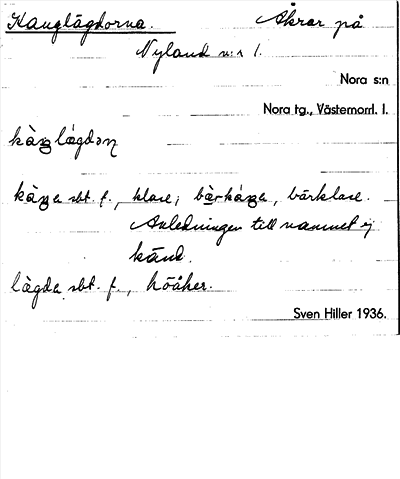 Kauglägdorna. Åkrar på
Nyland n:r 1.
Nora s:n
Nora tg., Västernorrl. l.
kàŋlägdən
kàŋa sbt. f., klase; bärkàŋa, bärklase.
Anledningen till namnet ej
känd.
lägda sbt. f., höåker.
Sven Hiller 1936.